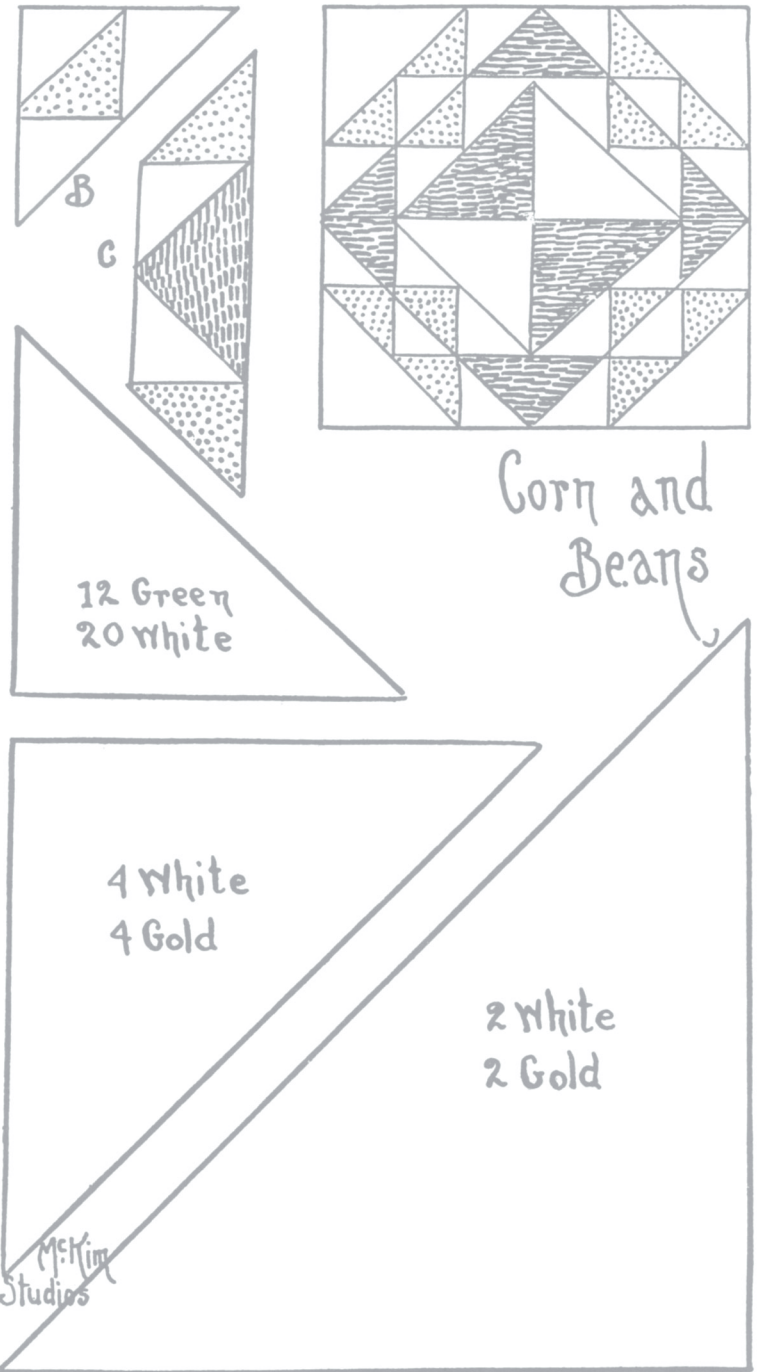 B
C
Corn and
Beans
12 Green
20 White
4 White
4 Gold
2 White
2 Gold
McKim
Studios